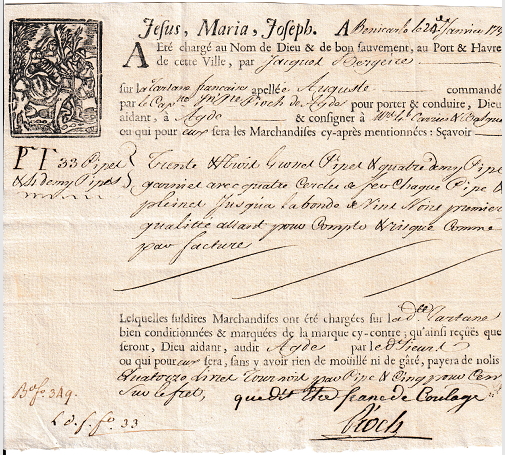 Jesus, Maria, Joseph. A Benicarlo le 24 Janvier
A Eté chargé au Nom de Dieu & de bon sauvement, au Port & Havre
de cette Ville, par Jacques
sur la Tartane francaise apellée Auguste commandé
par le Cap.ne Pioch de Agde pour porter & conduire, Dieu
aidant, à Agde & consigner à
ou qui pour eux sera les Marchandises cy-après mentionnées: Sçavoir
PT 33 Pipes
& 4 demy Pipes
Trente Pipes & quatre demy Pipe
garnies avec quatre Cercles de fer Chaque Pipe &
pleines Jusqu'a La bonde de Vins Noir premier
qualitté allant pour Compte & risque Comme
par facture
Lesquelles susdites Marchandises ont été chargées sur lad.te Tartane
bien conditionnées & marquées de la marque cy-contre; qu'ainsi reçuës que
seront, Dieu aidant, audit Agde par le d. Sieur
ou qui pour eux sera, sans y avoir rien de moüillé ni de gâté, payera de nolis
Quatorze Livres Tournois par Pipe & Cinq pour Cen
Sur le fret, que dit Etre franc de Coulage
Pioch
349
33